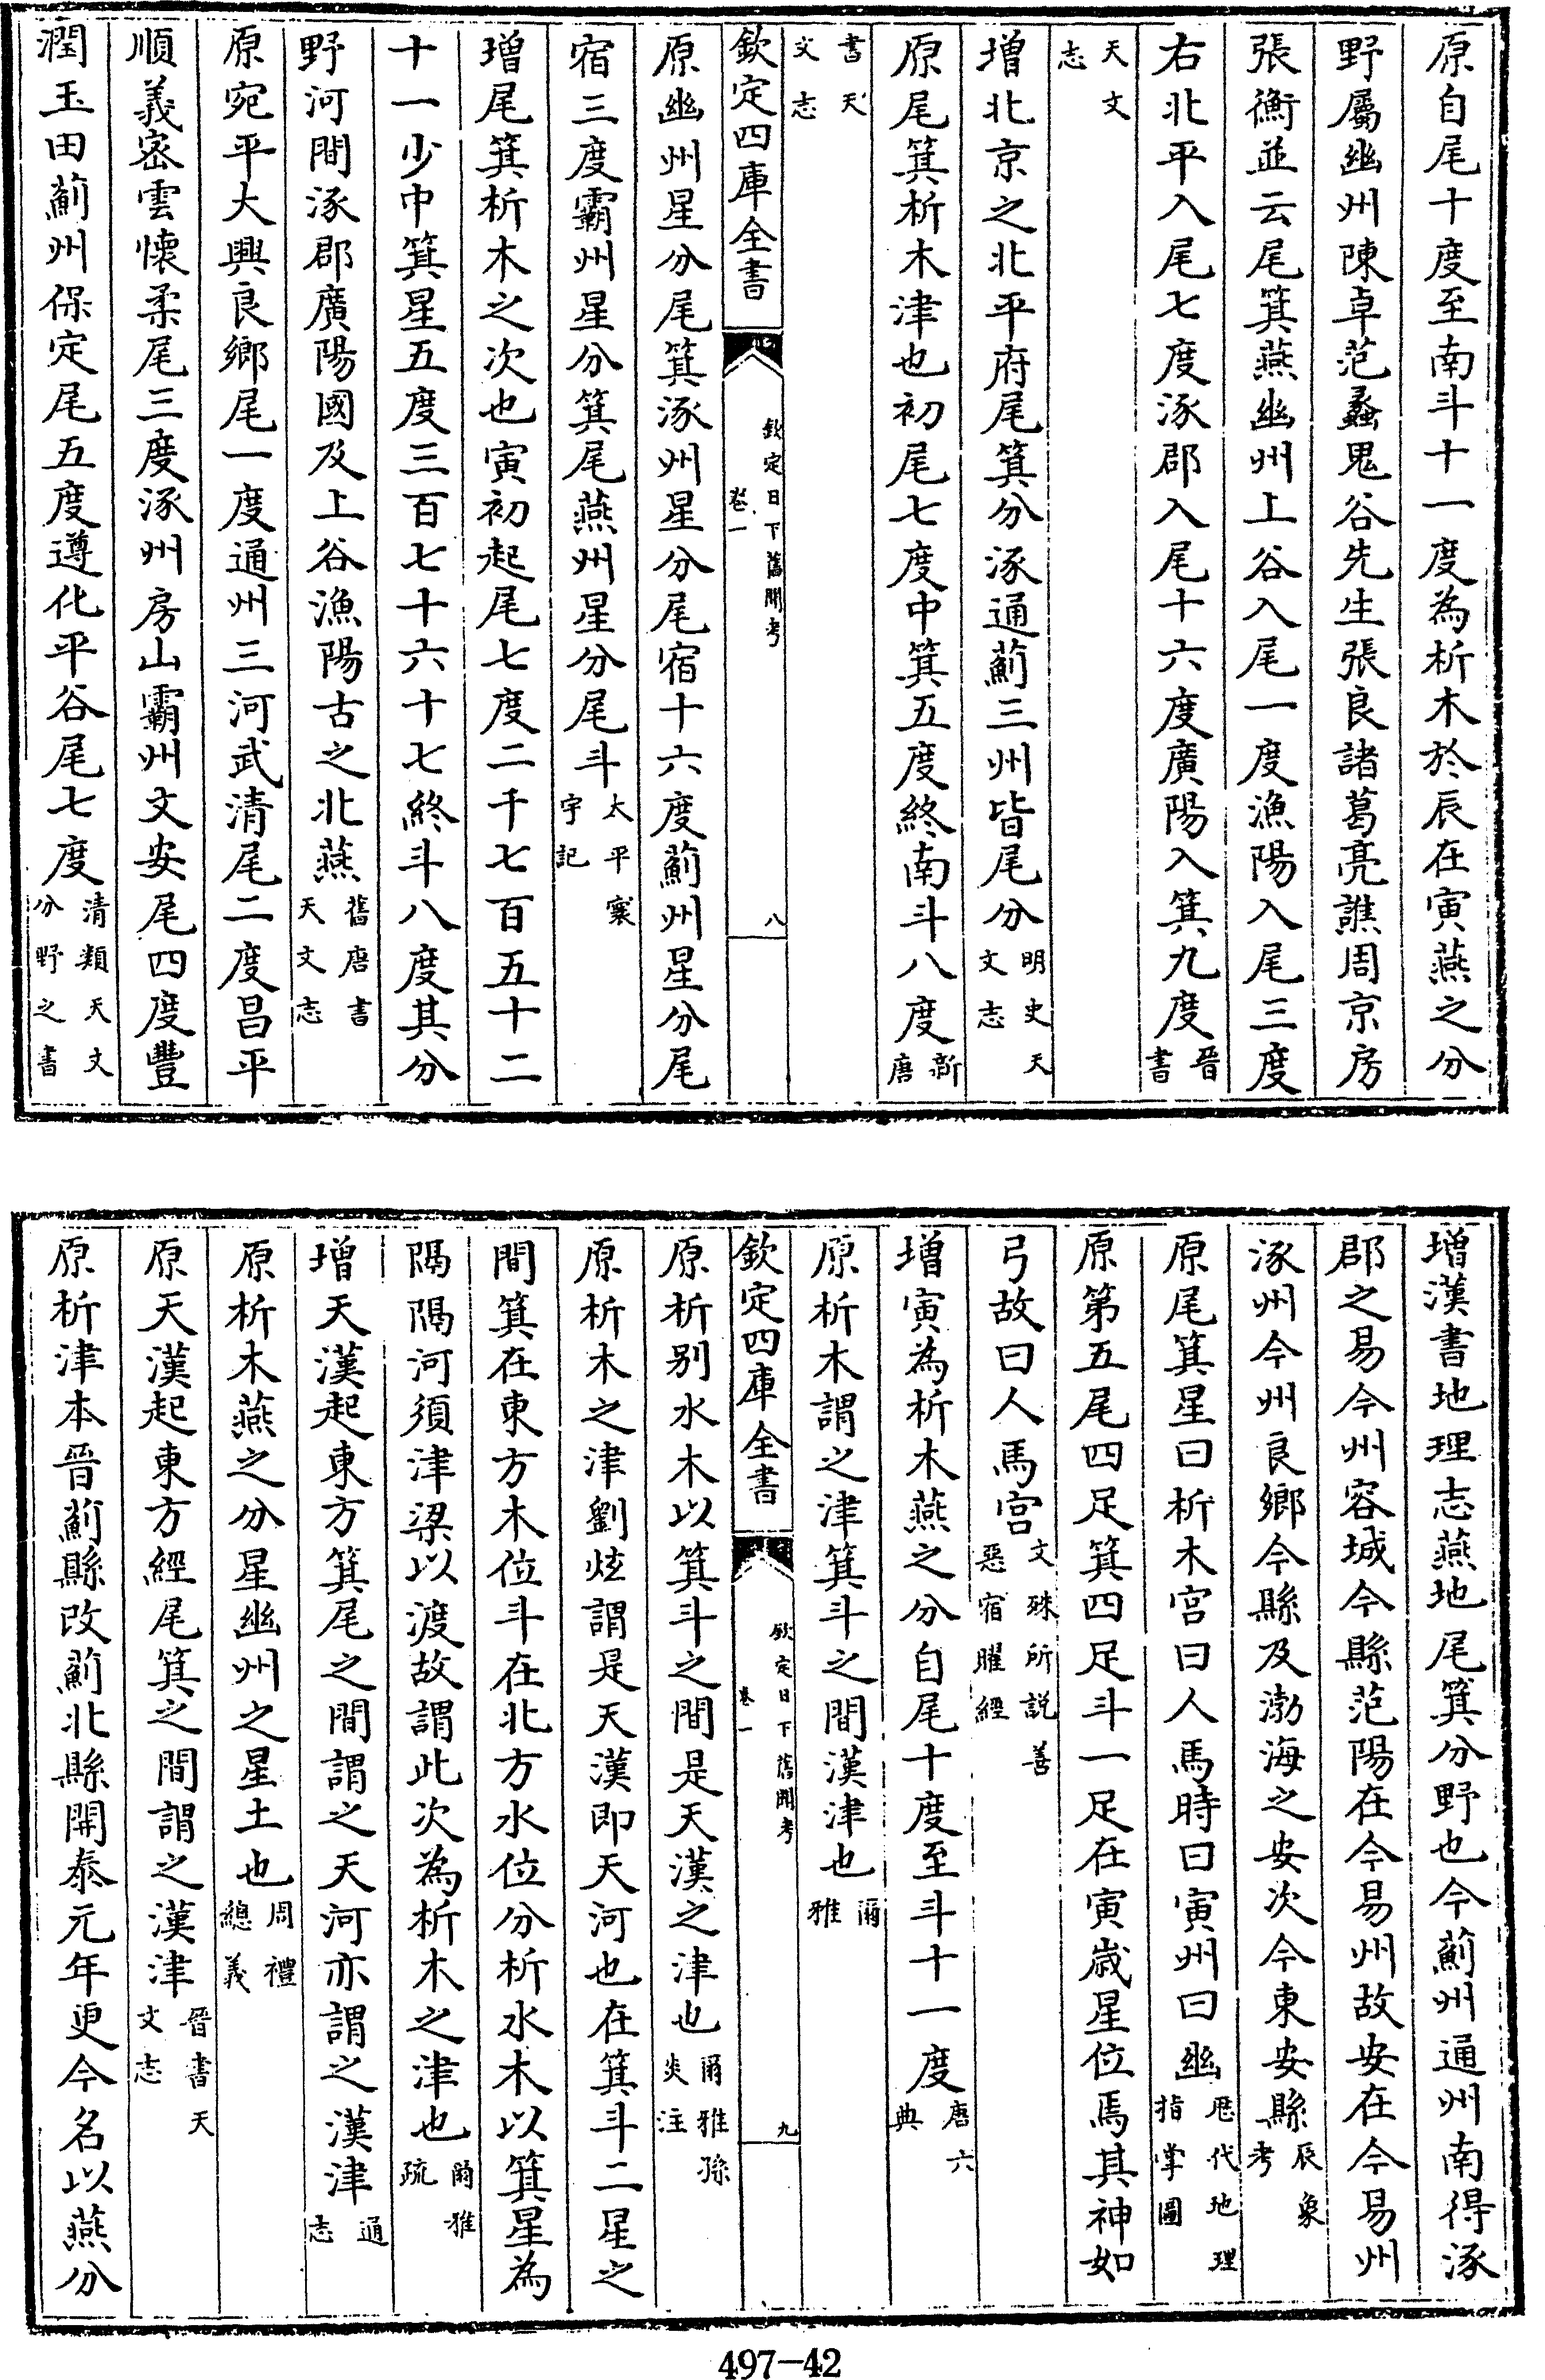 原自尾十度至南斗十一度為析木於辰在寅燕之分
野屬幽州陳卓范蠡鬼谷先生張良諸葛亮譙周京房
張衡並云尾箕燕幽州上谷入尾一度漁陽入尾三度
右北平入尾七度涿郡入尾十六度廣陽入箕九度晉書
天文志
增北京之北平府尾箕分涿通薊三州皆尾分明史天文志
原尾箕析木津也初尾七度中箕五度終南斗八度新唐
書天文志
欽定四庫全書
欽定日下舊聞考
卷一
八
原幽州星分尾箕涿州星分尾宿十六度薊州星分尾
宿三度霸州星分箕尾燕州星分尾斗太平寰宇記
增尾箕析木之次也寅初起尾七度二千七百五十二
十一少中箕星五度三百七十六十七終斗八度其分
野河間涿郡廣陽國及上谷漁陽古之北燕舊唐書天文志
原宛平大興良鄉尾一度通州三河武清尾二度昌平
順義密雲懷柔尾三度涿州房山霸州文安尾四度豐
潤玉田薊州保定尾五度遵化平谷尾七度清類天文分野之書
增漢書地理志燕地尾箕分野也今薊州通州南得涿
郡之易今州容城今縣范陽在今易州故安在今易州
涿州今州良鄉今縣及渤海之安次今東安縣辰象考
原尾箕星曰析木宮曰人馬時曰寅州曰幽歷代地理指掌圖
原第五尾四足箕四足斗一足在寅歲星位焉其神如
弓故曰人馬宮文殊所説善惡宿曜經
增寅為析木燕之分自尾十度至斗十一度唐六典
原析木謂之津箕斗之間漢津也爾雅
欽定四庫全書
欽定日下舊聞考
卷一
九
原析別水木以箕斗之間是天漢之津也爾雅孫炎注
原析木之津劉炫謂是天漢即天河也在箕斗二星之
間箕在東方木位斗在北方水位分析水木以箕星為
隔隔河須津梁以渡故謂此次為析木之津也爾雅疏
增天漢起東方箕尾之間謂之天河亦謂之漢津通志
原析木燕之分星幽州之星土也周禮總義
原天漢起東方經尾箕之間謂之漢津晉書天文志
原析津本晉薊縣改薊北縣開泰元年更今名以燕分
497-42